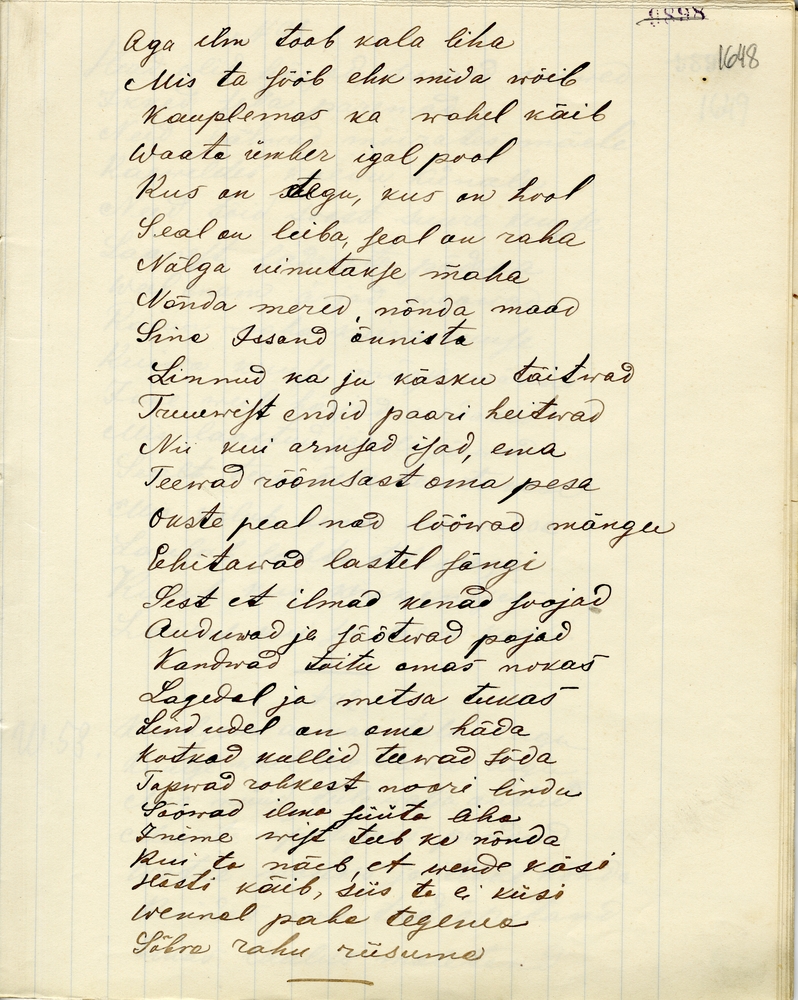 9898
1648
Aga ilm toob kala liha
Mis ta sööb ehk mida wõib
Kauplemas ka wahel käib
Waata ümber igal pool
Kus on tegu, kus on hool
Seal on leiba, seal on raha
Nälga uinutakse maha
Nõnda mered, nõnda maad
Sina Issand õnnista
Linnud ka ju käsku täitwad
Truuwist endid paari heitwad
Nii kui armsad isad, ema
Teewad rõõmsast oma pesa
Okste peal nad lööwad mängu
Ehitawad lastel sängi
Sest et ilmad kenad soojad
Auduwad ja söötwad pojad
Kandwad toitu omas nokas
Lagedal ja metsa tukas
Lindudel on oma häda
Kotkad kullid teewad sõda
Tapwad rohkest noori lindu
Sööwad ilma süüta liha
Inime wist teeb ka nõnda
Kui ta näeb, et wende käsi
Hästi käib, siis ta ei küsi
Wennal paha tegema
Sõbra rahu riisuma